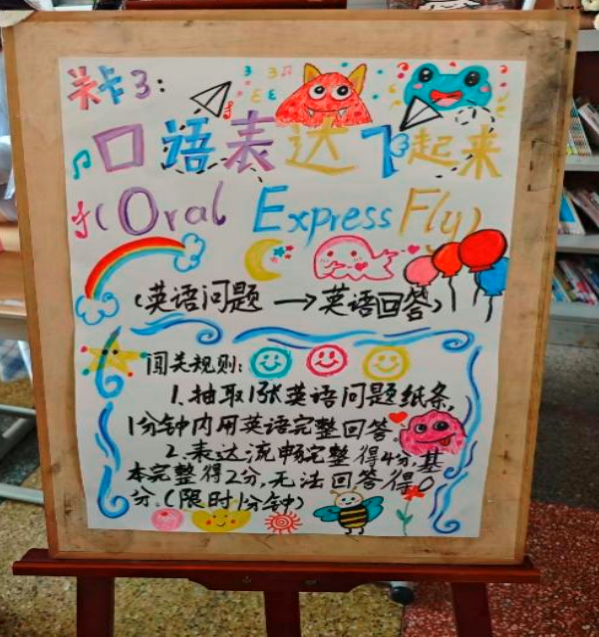 关卡3:
口语表达飞起来
(Oral Express Fly)
(英语问题→英语回答)
闯关规则:
1.抽取1张英语问题纸条,
1分钟内用英语完整回答.
2.表达流畅完整得4分,基
本完整得2分,无法回答得0
分.(限时1分钟)